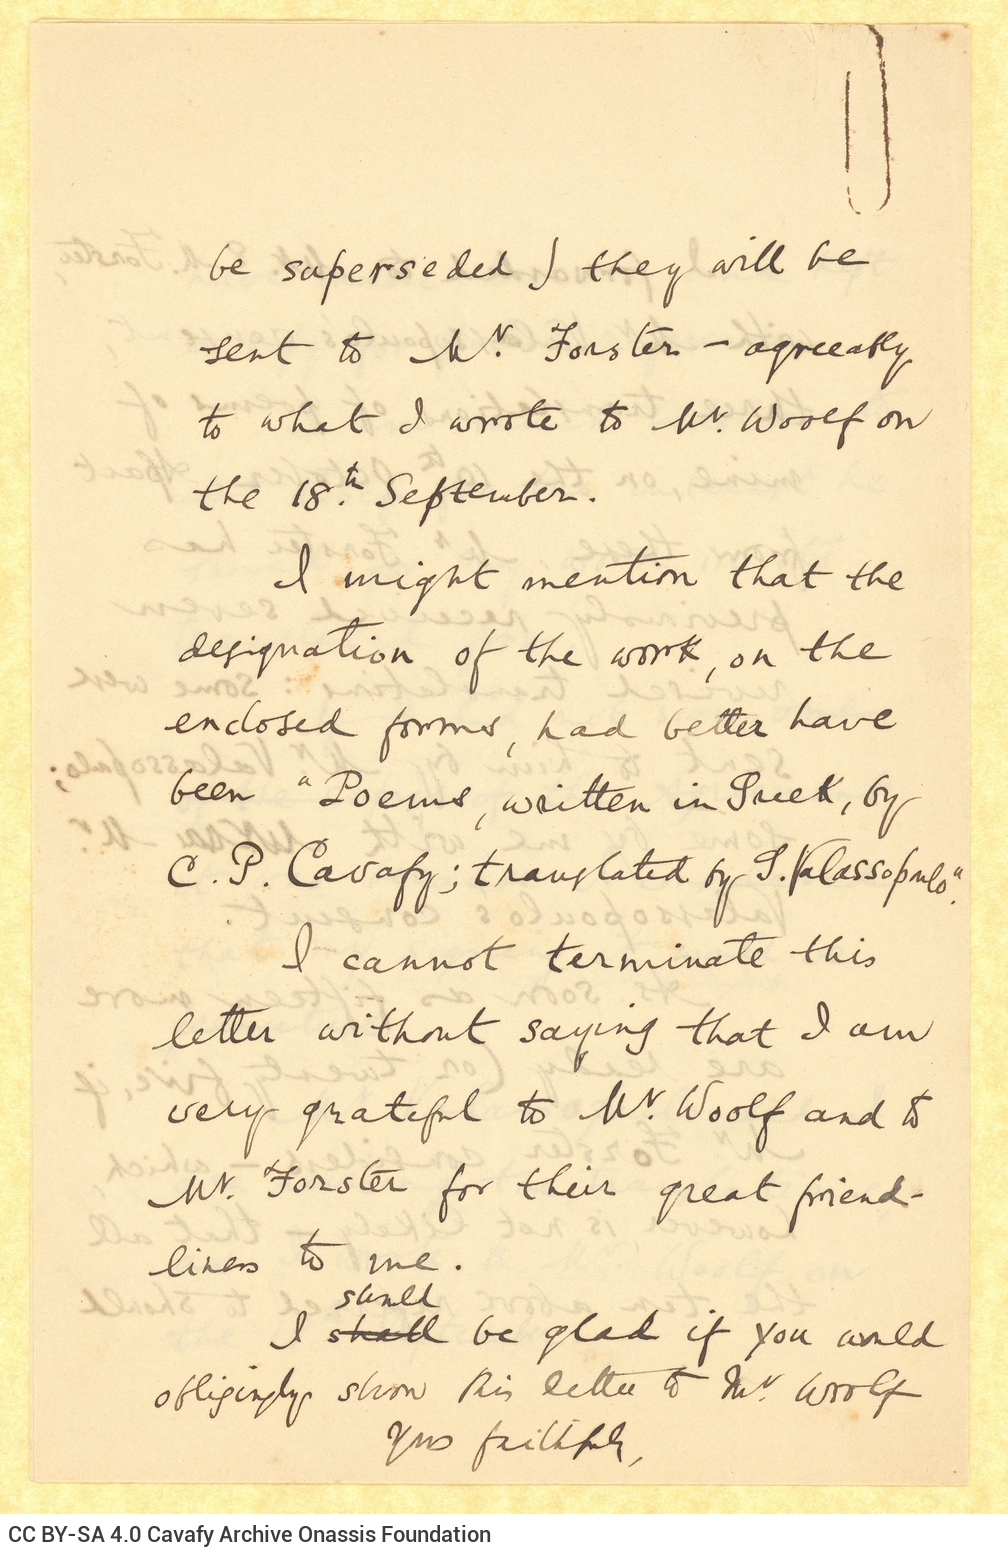 be superseded) they will be
sent to Mr. Forster – agreeably
to what I wrote to Mr. Woolf on
the 18.th September.
I might mention that the
designation of the work, on the
enclosed forms, had better have
been "Poems, written in Greek, by
C. P. Cavafy; translated by G. Valassopulo".
I cannot terminate this
letter without saying that I am
very grateful to Mr. Woolf and to
Mr. Forster for their great friend-
liness to me.
should
I shall be glad if you would
obligingly show this letter to Mr Woolf
Yrs faithfully,
CC BY-SA 4.0 Cavafy Archive Onassis Foundation